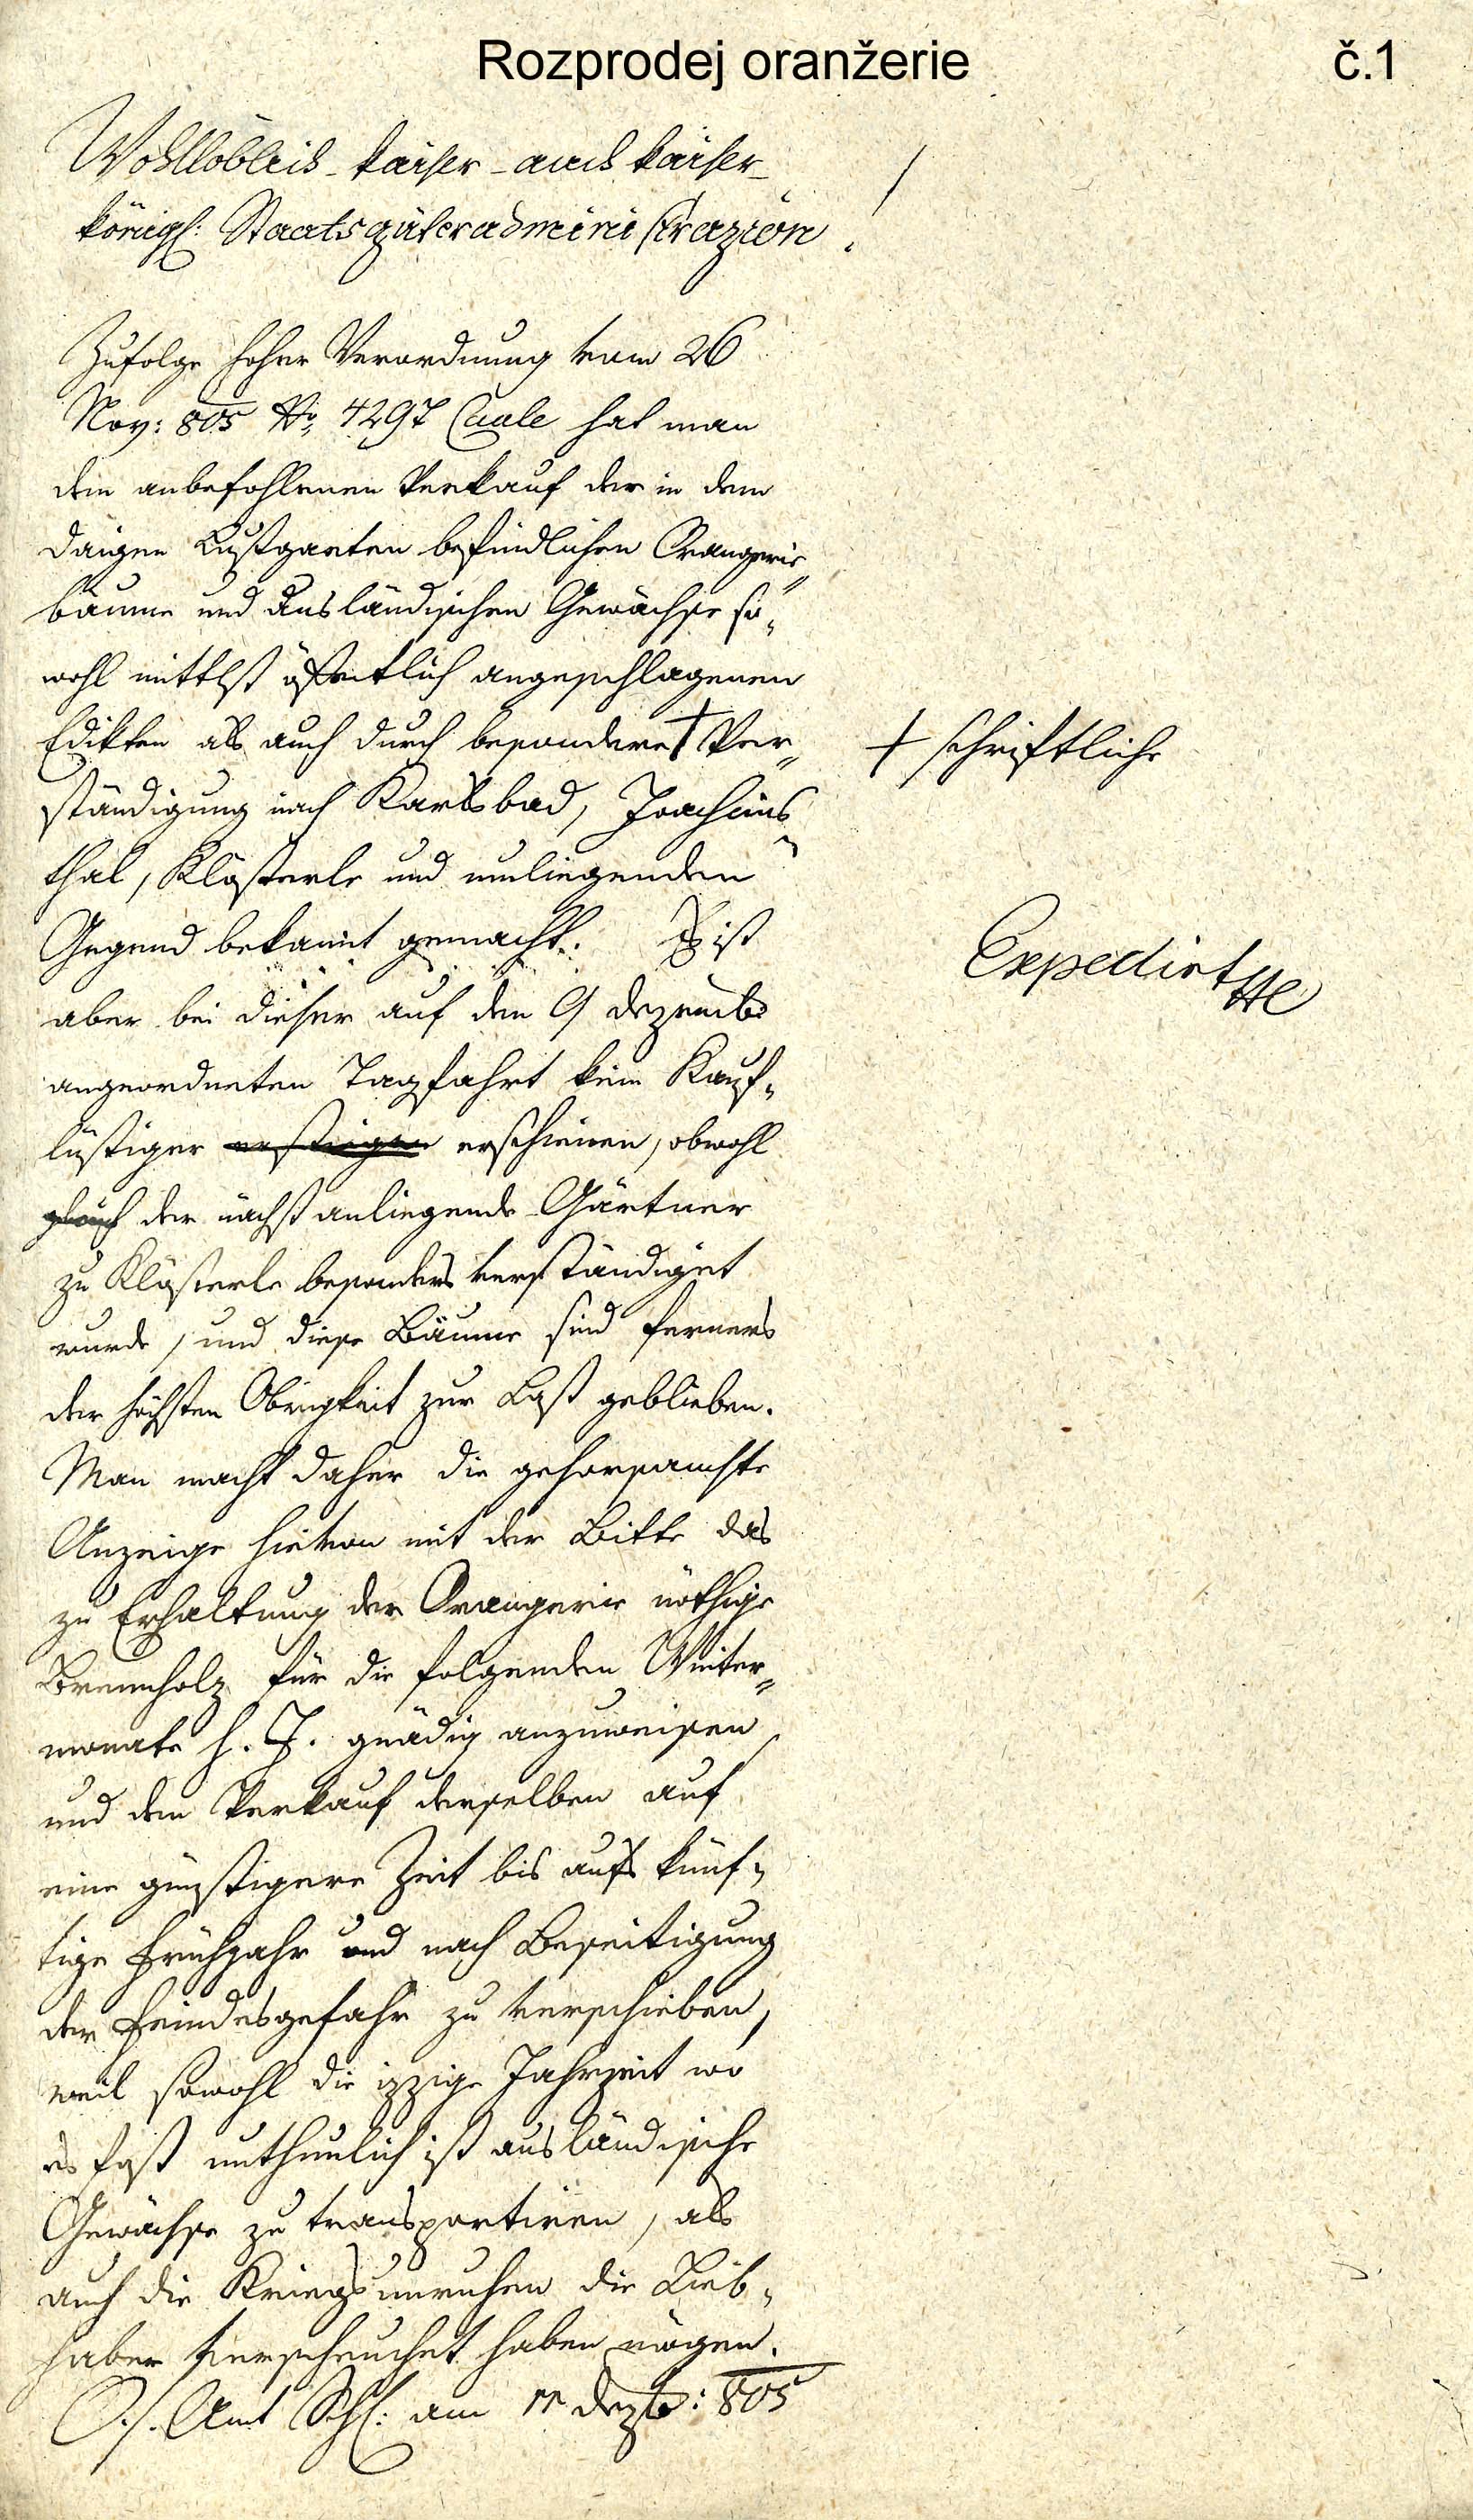 Rozprodej oranžerie č.1
Wohllöblich kaiser- auch kaiser-
königl: Staatsgüteradministrazion
Zufolge hoher Verordnung vom 26
Nov: 805 No 4297 Caale hat man
den anbefohlenen Verkauf der in dem
daigen Lustgarten befindlichen Orangerie
bäume und ausländischen Gewächse so„
wohl mittlst öffentlich angeschlagenen
Edikten als auch durch besondere † Ver„
ständigung nach Karlsbad, Joachims„
thal, Klösterle und umliegenden
Gegend bekannt gemacht. Es ist
† schriftliche
Expedirt
aber bei dieser auf den 9 Dezemb
angeordneten Tagfahrt kein Kauf„
lustiger erstiegen erschienen, obwohl
gleich der nächst anliegende Gärtner
zu Klösterle besonders verständiget
wurde, und diese Bäume sind ferners
der höchsten Obrigkeit zur Last geblieben.
Man macht daher die gehorsamste
Anzeige hievon mit der Bitte das
zu Erhaltung der Orangerie nöthige
Brennholz für die folgenden Winter„
monate h. J. gnädig anzuweisen,
und den Verkauf derselben auf
eine günstigere Zeit bis aufs künf„
tige Frühjahr und nach Beseitigung
der Feindesgefahr zu verschieben,
weil sowohl die izzige Jahrzeit wo
es fast unthunlich ist ausländische
Gewächse zu transportiren, als
auch die Kriegsunruhen die Lieb„
haber verscheuchet haben mögen.
Amt Schl: am 11 Dezb: 805